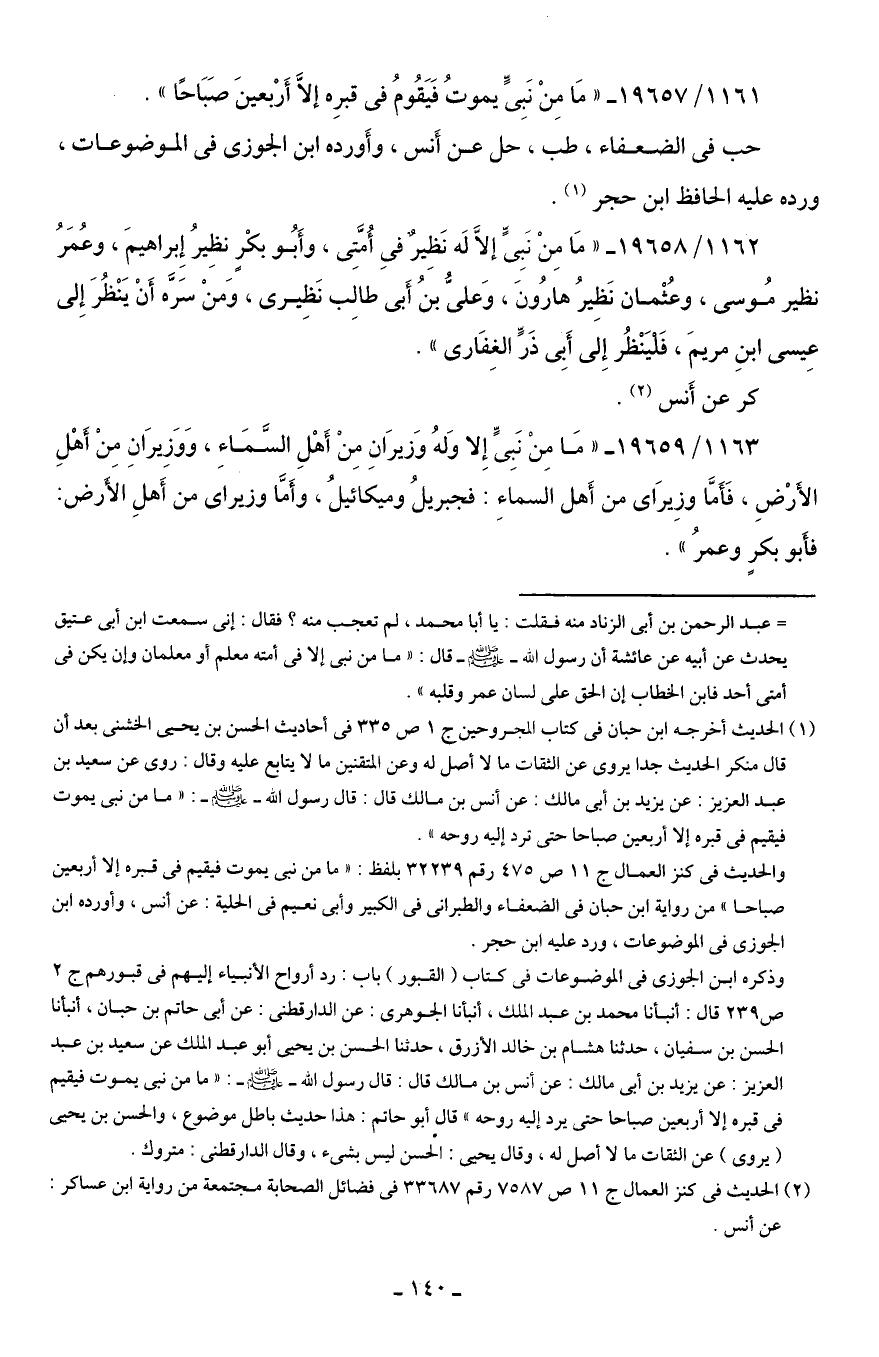 ١١٦١/ ١٩٦٥٧ـ « مَا مِنْ نَبِىٍّ يموتُ فَيَقُومُ فى قبرِه إلاَّ أَرْبعينَ صَبَاحًا » .
حب فى الضـعـفاء ، طب ، حل عـن أنس ، وأورده ابن الجوزى فى المـوضـوعـات ،
ورده عليه الحافظ ابن حجر (١) .
١١٦٢/ ١٩٦٥٨ـ « مَا مِنْ نَبِىٍّ إلاَّ لَه نَظيرٌ فى أُمَّتى ، وأَبُـو بكْرٍ نظيرُ إبراهيمَ ، وعُمَرُ
نظير مُـوسى ، وعثْمـان نَظيرُ هارُونَ ، وَعَلىُّ بنُ أبى طالِب نَظيـرى ، ومَنْ سَرَّه أَنْ يَنْظُرَ إلى
عِيسى ابنِ مريمَ ، فَلْيَنْظُر إلى أَبِى ذَرٍّ الغِفَارى » .
كر عن أَنس (٢) .
١١٦٣/ ١٩٦٥٩ـ « مَـا مِنْ نَبِىٍّ إلا ولَهُ وَزيرَانِ مِنْ أَهْلِ السَّـمَـاءِ ، وَوَزِيرَانِ مِنْ أَهْلِ
الأَرْضِ ، فَأَمَّا وزِيرَاى من أَهل السماءِ : فجبريلُ وميكائيلُ ، وأَمَّا وزيراى من أَهلِ الأَرض:
فأَبو بكرٍ وعمرُ » .
= عبـد الرحمن بن أبى الزناد منه فـقلت : يا أبا محـمد ، لم تعجـب منه ؟ فقال : إنى سـمعت ابن أبى عـتيق
يحدث عن أبيه عن عائشة أن رسول الله ـ ﷺ ـ قال : « مـا من نبى إلا فى أمته معلم أو معلمان وإن يكن فى
أمتى أحد فابن الخطاب إن الحق على لسان عمر وقلبه » .
(١) الحديث أخرجـه ابن حبان فى كتاب المجـروحين ج ١ ص ٣٣٥ فى أحاديث الحسن بن يحـيى الخشنى بعد أن
قال منكر الحديث جدا يروى عن الثقات ما لا أصل له وعن المتقنين ما لا يتابع عليه وقال : روى عن سعيد بن
عبـد العزيز : عن يزيد بن أبى مالك : عن أنس بن مـالك قال : قال رسول الله ـ ﷺ ـ : « مـا من نبى يموت
فيقيم فى قبره إلا أربعين صباحا حتى ترد إليه روحه » .
والحديث فى كنز العمـال ج ١١ ص ٤٧٥ رقم ٣٢٢٣٩ بلفظ : « ما من نبى يموت فيقيم فى قـبره إلا أربعين
صباحـا » من رواية ابن حبان فى الضعـفاء والطبرانى فى الكبير وأبى نعـيم فى الحلية : عن أنس ، وأورده ابن
الجوزى فى الموضوعات ، ورد عليه ابن حجر .
وذكره ابـن الجوزى فى الموضـوعات فى كـتاب ( القـبور ) باب : رد أرواح الأنبـياء إليـهم فى قبـورهم ج ٢
ص٢٣٩ قال : أنبـأنا محمد بن عـبد الملك ، أنبأنا الجـوهرى : عن الدارقطنى : عن أبى حاتم بن حبـان ، أنبأنا
الحسن بن سـفيان ، حدثنا هشـام بن خالد الأزرق ، حدثنا الحـسن بن يحيى أبو عبـد الملك عن سعيد بن عـبد
العزيز : عن يزيد بن أبى مالك : عن أنس بن مـالك قال : قال رسول الله ـ ﷺ ـ : « ما من نبى يمـوت فيقيم
فى قبره إلا أربعين صباحا حتى يرد إليه روحه » قال أبو حاتم : هذا حديث باطل موضوع ، والحسن بن يحيى
( يروى ) عن الثقات ما لا أصل له ، وقال يحيى : الحسن ليس بشىء ، وقال الدارقطنى : متروك .
(٢) الحديث فى كنز العمال ج ١١ ص ٧٥٨٧ رقم ٣٣٦٨٧ فى فضائل الصحابة مـجتمعة من رواية ابن عساكر :
عن أنس .
ـ ١٤٠ ـ